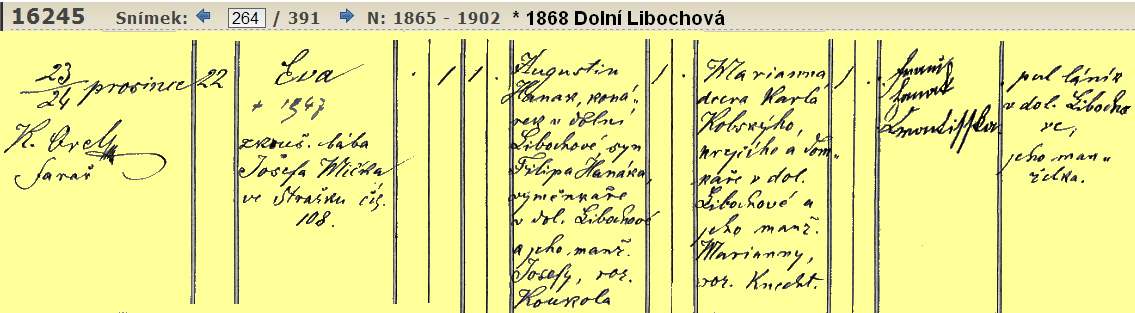 16245 Snímek: 264 / 391 N: 1865 - 1902 * 1868 Dolní Libochová
23
24 prosince
K. Orel
farář
22
Eva
+ 1947
zkouš. bába
Josefa Mička
ve Strašku čís.
108.
1 1
Augustin
Hanák, koná-
v dolní
Libochové syn
Filipa Hanáka,
výměnkáře
v dol. Libochové
a jeho manž.
Josefy, roz.
Koukola
1
Marianna
dcera Karla
Kobského,
krejčího a dom-
káře v dol.
Libochové a
jeho manž.
Marianny,
roz. Knecht.
1
Hanák
pul láník
v dol. Libocho-
ve,
jeho man-
želka.